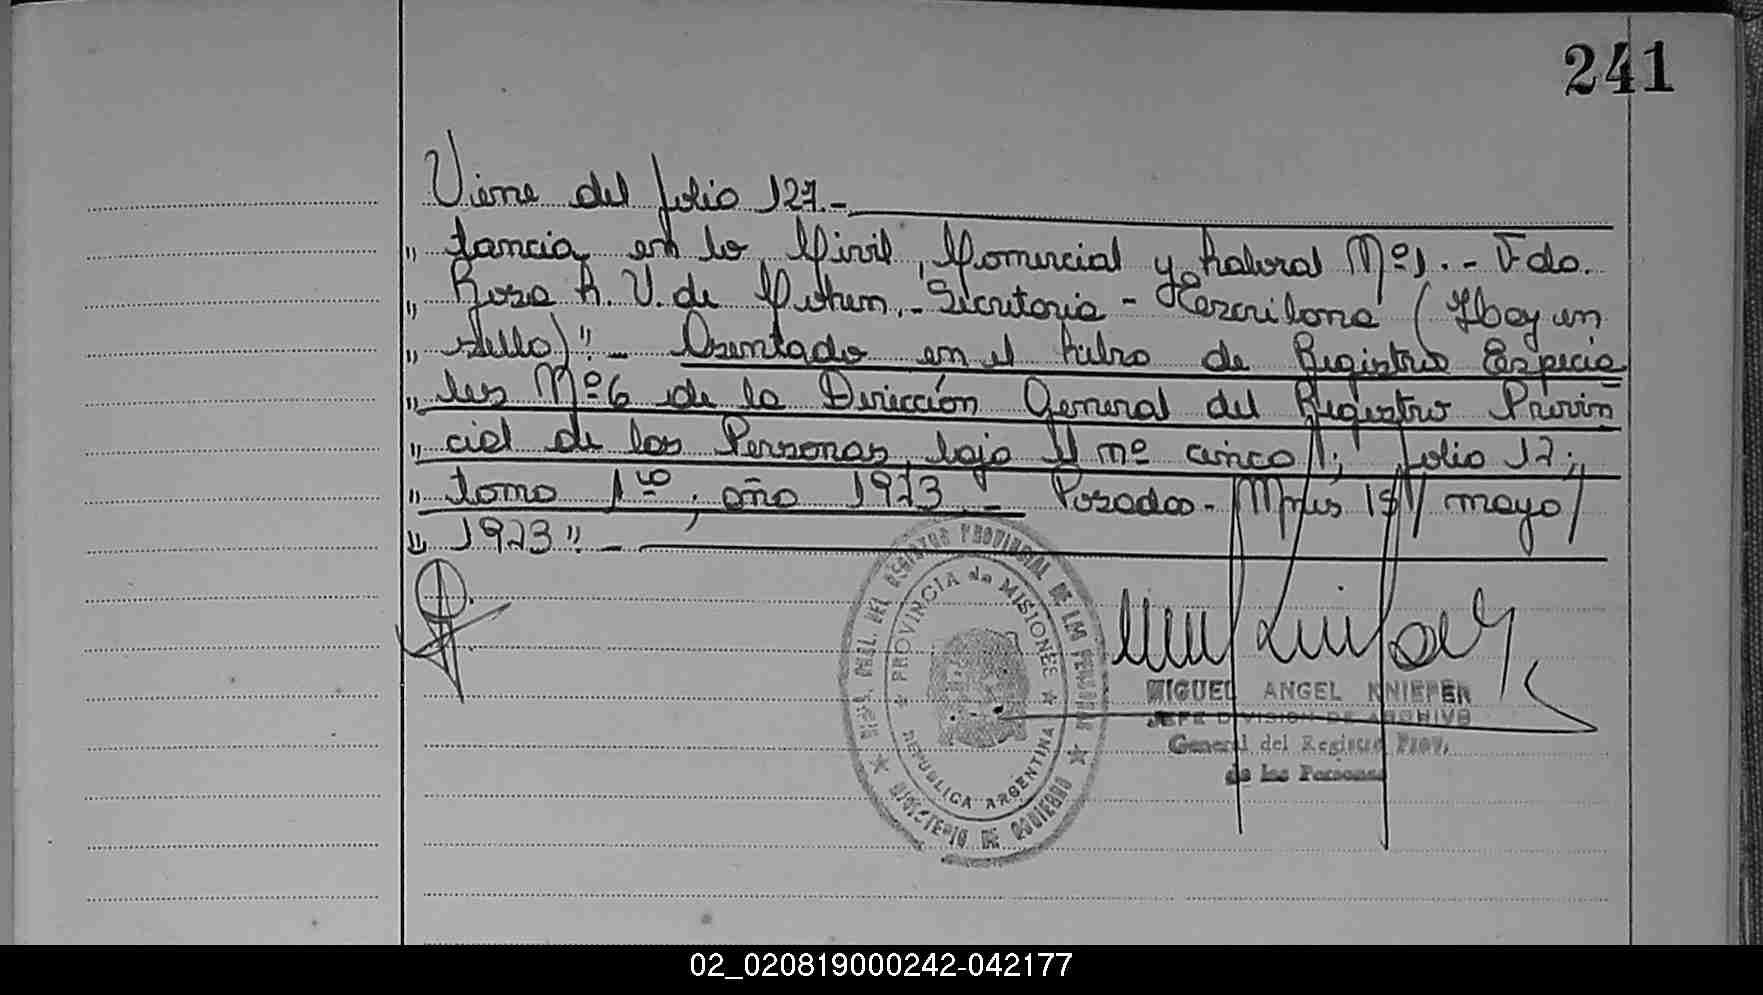 241
Viene del folio 127.-
" tancia en lo Civil, Comercial y Laboral Nº1.- Fdo.
" Rosa L. V. de - Secretaria - Escribana (Hay un
" sello)".- Asentado en el Libro de Registros Especia
" les Nº6 de la Dirección General del Registro Provin
" cial de las Personas, bajo el nº cinco/; folio 12;
" tomo 1ro, año 1973.- Posadas - Mnes 15/ mayo/
" 1973".-
PROVINCIA de MISIONES
REPUBLICA ARGENTINA
MINISTERIO DE GOBIERNO
MIGUEL ANGEL KNIEPER
JEFE DIVISION DE ARCHIVO
General del Registro Prov.
de las Personas
02_020819000242-042177